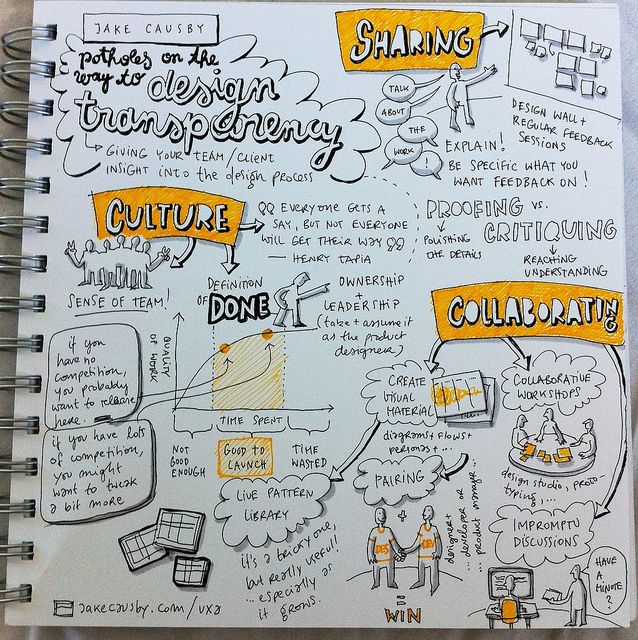 JAKE CAUSBY
potholes on the
way to design
transparency
GIVING YOUR TEAM/CLIENT
INSIGHT INTO the design process
SHARING
TALK
ABOUT
THE
WORK
!
DESIGN WALL +
REGULAR FEEDBACK
SESSIONS
EXPLAIN!
BE SPECIFIC WHAT YOU
WANT FEEDBACK ON!
CULTURE
SENSE OF TEAM!
EVERYONE GETS A
SAY, BUT NOT EVERYONE
WILL GET THEIR WAY
— HENRY TAPIA
PROOFING vs.
CRITIQUING
POLISHING
THE DETAILS
REACHING
UNDERSTANDING
DEFINITION
OF DONE
OWNERSHIP
+
LEADERSHIP
(take + assume it
as the product
designer)
QUALITY
OF WORK
TIME SPENT
NOT
GOOD
ENOUGH
GOOD TO
LAUNCH
TIME
WASTED
if you
have no
competition,
you probably
want to release
here.
if you have lots
of competition,
you might
want to tweak
a bit more
COLLABORATING
CREATE
VISUAL
MATERIAL
diagrams + flows +
personas + ...
COLLABORATIVE
WORKSHOPS
design studio, proto-
typing, ...
LIVE PATTERN
LIBRARY
it's a tricky one,
but really useful!
... especially as
it grows.
PAIRING
+
DES
DEV
= WIN
designer +
... developer or
... product manager ...
IMPROMPTU
DISCUSSIONS
HAVE
A
MINUTE
?
jakecausby.com/uxa